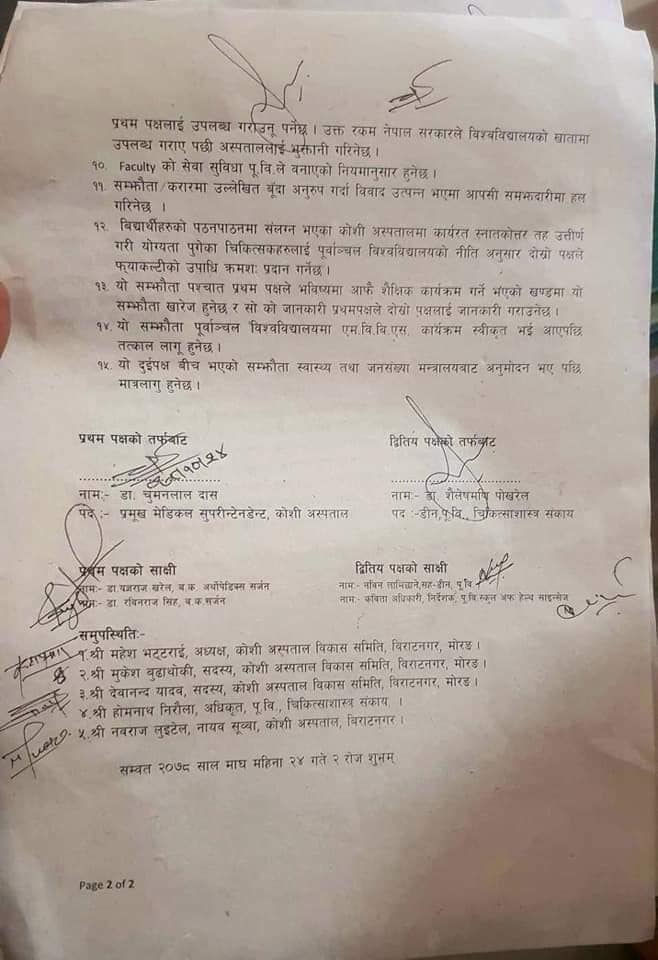 प्रथम पक्षलाई उपलब्ध गराउनू पर्नेछ । उक्त रकम नेपाल सरकारले विश्वविद्यालयको खातामा
उपलब्ध गराए पछी अस्पताललाई भुक्तानी गरिनेछ ।
१०. Faculty को सेवा सुविधा पू.वि.ले बनाएको नियमानुसार हुनेछ ।
११. सम्झौता/करारमा उल्लेखित बूंदा अनुरुप गर्दा विवाद उत्पन्न भएमा आपसी समझदारीमा हल
गरिनेछ ।
१२. बिद्यार्थीहरुको पठनपाठनमा संलग्न भएका कोशी अस्पतालमा कार्यरत स्नातकोत्तर तह उत्तीर्ण
गरी योग्यता पुगेका चिकित्सकहरुलाई पूर्वाञ्चल विश्वविद्यालयको नीति अनुसार दोस्रो पक्षले
फ्याकल्टीको उपाधि क्रमशः प्रदान गर्नेछ ।
१३. यो सम्झौता पश्चात प्रथम पक्षले भविष्यमा आफै शैक्षिक कार्यक्रम गर्ने भएको खण्डमा यो
सम्झौता खारेज हुनेछ र सो को जानकारी प्रथमपक्षले दोस्रो पक्षलाई जानकारी गराउनेछ ।
१४. यो सम्झौता पूर्वाञ्चल विश्वविद्यालयमा एम.बि.बि.एस. कार्यक्रम स्वीकृत भई आएपछि
तत्काल लागू हुनेछ ।
१५. यो दुईपक्ष बीच भएको सम्झौता स्वास्थ्य तथा जनसंख्या मन्त्रालयबाट अनुमोदन भए पछि
मात्रलागु हुनेछ ।
प्रथम पक्षको तर्फबाट द्वितिय पक्षको तर्फबाट
नामः- डा. चुमनलाल दास नामः- डा. शैलेषमणि पोखरेल
पद :- प्रमूख मेडिकल सुपरीन्टेनडेन्ट, कोशी अस्पताल पद :-डीन,पू.वि., चिकित्साशास्त्र संकाय
प्रथम पक्षको साक्षी द्वितिय पक्षको साक्षी
नामः- डा.यज्ञराज खरेल, ब.क. अर्थोपेडिक्स सर्जन नामः- नविन लामिछाने,सह-डीन, पू.वि.
नामः- डा. रबिनराज सिंह, ब.क.सर्जन नामः- कविता अधिकारी, निर्देशक, पू.वि.स्कूल अफ हेल्थ साइन्सेज
समुपस्थितिः-
१.श्री महेश भट्टराई, अध्यक्ष, कोशी अस्पताल विकास समिति, विराटनगर, मोरङ ।
२.श्री मुकेश बुढाथोकी, सदस्य, कोशी अस्पताल विकास समिति, विराटनगर, मोरङ ।
३.श्री देवानन्द यादव, सदस्य, कोशी अस्पताल विकास समिति, विराटनगर, मोरङ ।
४.श्री होमनाथ निरौला, अधिकृत, पू.वि., चिकित्साशास्त्र संकाय, ।
५.श्री नवराज लुइटेल, नायव सूव्वा, कोशी अस्पताल, बिराटनगर ।
सम्वत २०७८ साल माघ महिना २४ गते २ रोज शुभम्
Page 2 of 2